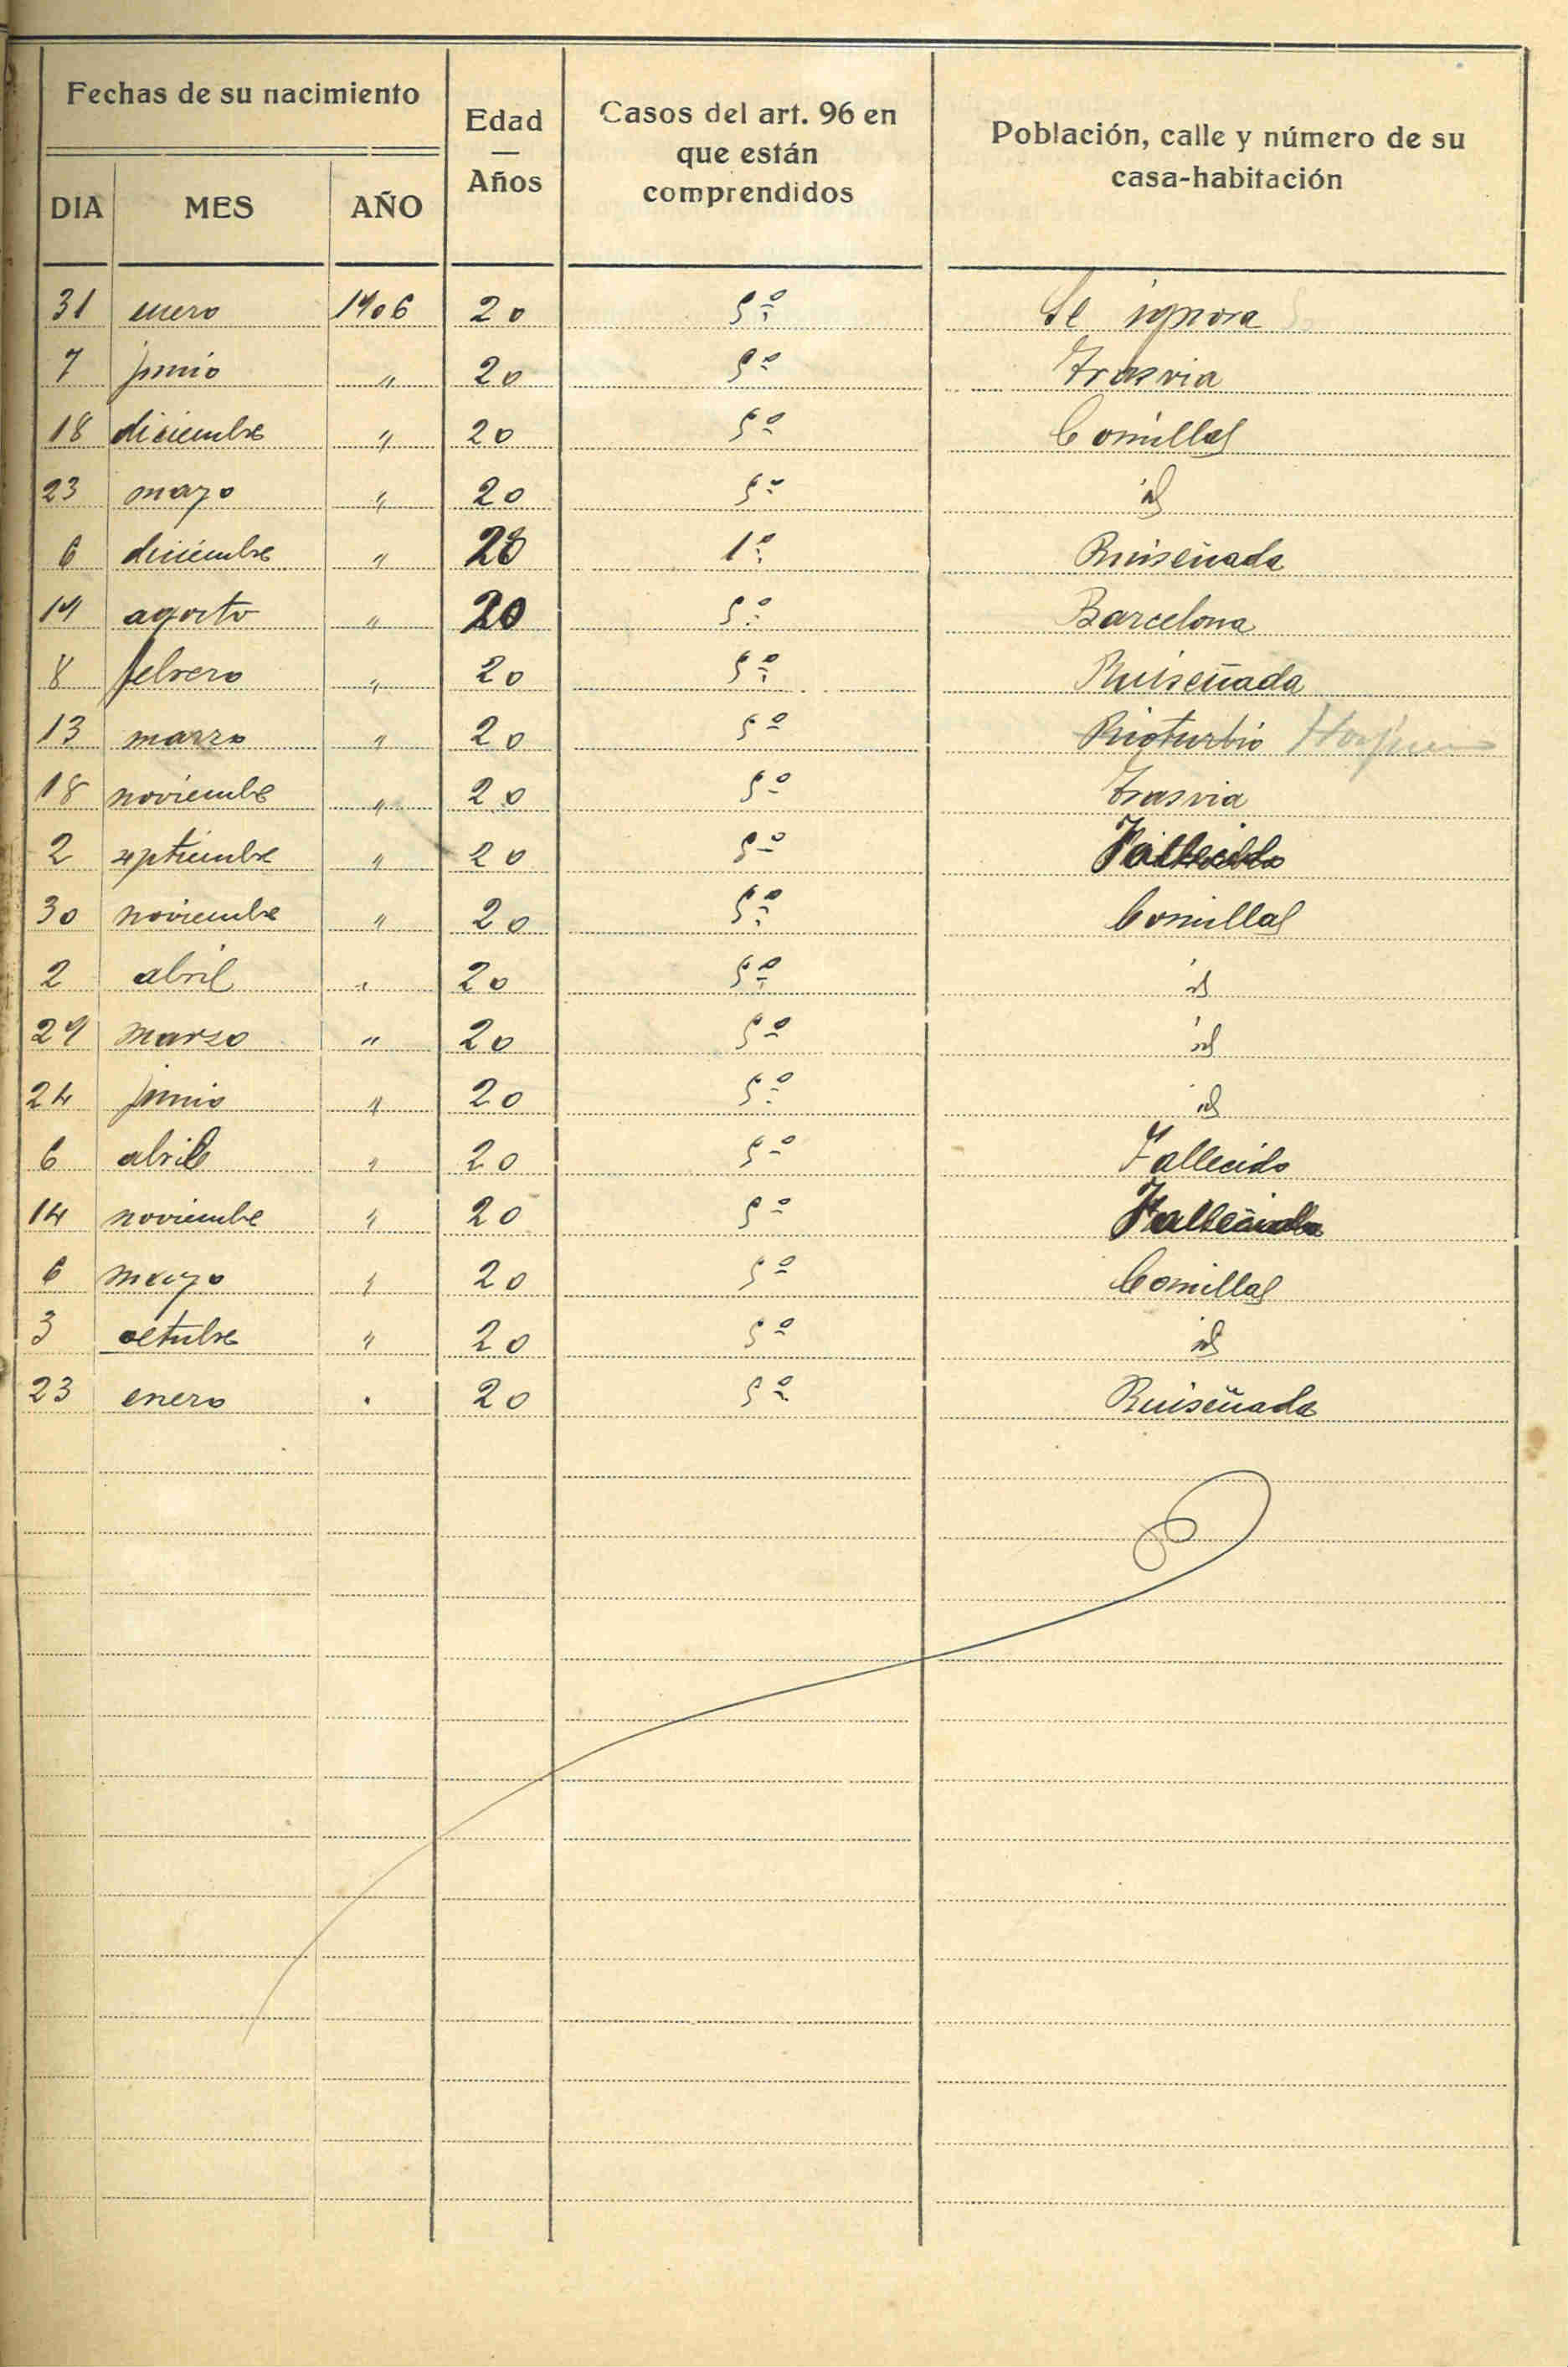 Fechas de su nacimiento
Edad
—
Años
Casos del art. 96 en
que están
comprendidos
Población, calle y número de su
casa-habitación
DIA MES AÑO
31 enero 1906 20 5º Se ignora
7 junio " 20 5º Trasvia
18 diciembre " 20 5º Comillas
23 mayo " 20 5º id
6 diciembre " 20 1º Ruiseñada
19 agosto " 20 5º Barcelona
8 febrero " 20 5º Ruiseñada
13 marzo " 20 5º Rioturbio
18 noviembre " 20 5º Trasvia
2 septiembre " 20 5º Fallecido
30 noviembre " 20 5º Comillas
2 abril " 20 5º id
29 marzo " 20 5º id
24 junio " 20 5º id
6 abril " 20 5º Fallecido
14 noviembre " 20 5º Fallecido
6 mayo " 20 5º Comillas
3 octubre " 20 5º id
23 enero " 20 5º Ruiseñada